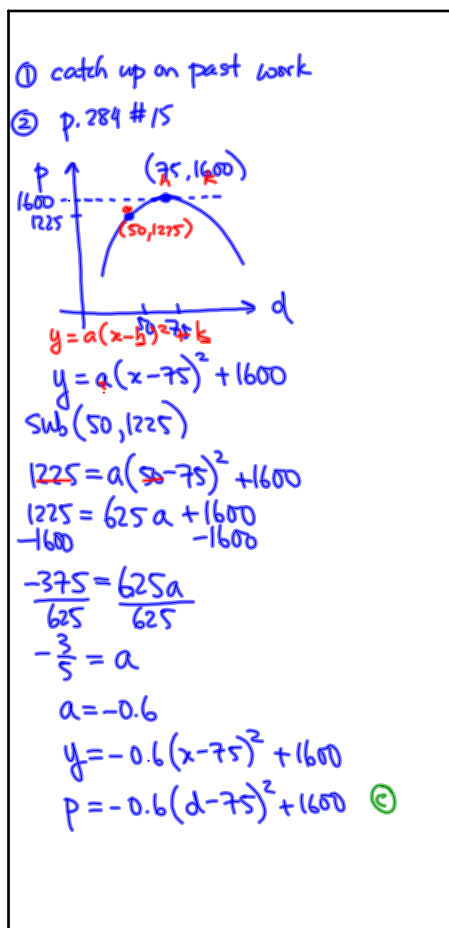 ① catch up on past work
② p.284 #15
p
(75, 1600)
h k
1600
1225
(50, 1225)
d
50 75
y = a(x-h)² + k
y = a(x-75)² + 1600
sub (50, 1225)
1225 = a(50-75)² + 1600
1225 = 625a + 1600
-1600 -1600
-375 = 625a
625 625
-3/5 = a
a = -0.6
y = -0.6(x-75)² + 1600
p = -0.6(d-75)² + 1600 ⓒ